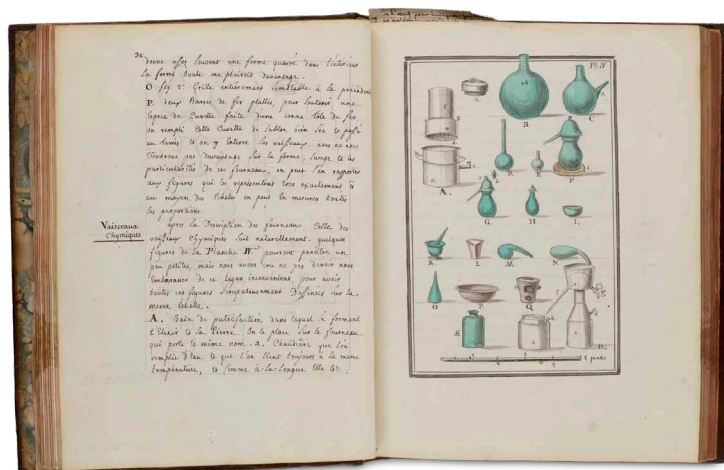 donne assez souvent une forme quarré dans l'interieur
la forme ovale me plairoit davantage.
O fig. 2. Grille entierement semblable à la précédente
P. deux Barres de fer plattes, pour soutenir une
Espece de Cuvette faite d'une bonne tole de fer
on remplit Cette Cuvette de Sablon bien sec et passé
au tamis et on y Enterre les vaisseaux. nous ne nous
Etendrons pas davantage sur la forme, l'usage et les
particularités de ces fourneaux, on peut s'en rapporter
aux figures qui les representent tres exactement et
au moyen des Echeles on peut en mesurer toutes
les proportions.
Vaisseaux
Chymiques
après la Description des fourneaux Celle des
vaisseaux Chymiques suit naturellement. quelques
figures de la Planche IV pourront paroître un
peu petites, mais nous avons cru ne pas devoir nous
Embarasser de ce leger inconvenient pour avoir
toutes ces figures Scrupuleusement Dessinées sur la
meme Echelle.
A. Bain de putrefaction dans lequel se forment
l'Elixir et la Pierre. On le place sur le fourneau
qui porte le même nom. a. Chaudiere que l'on
remplit d'Eau et que l'on tient toujours à la même
température, et Comme à la longue Elle
Pl. IV
B. C.
A. D. E. F.
G. H. I.
K. L. M. N.
O P. Q
S. R.
pieds